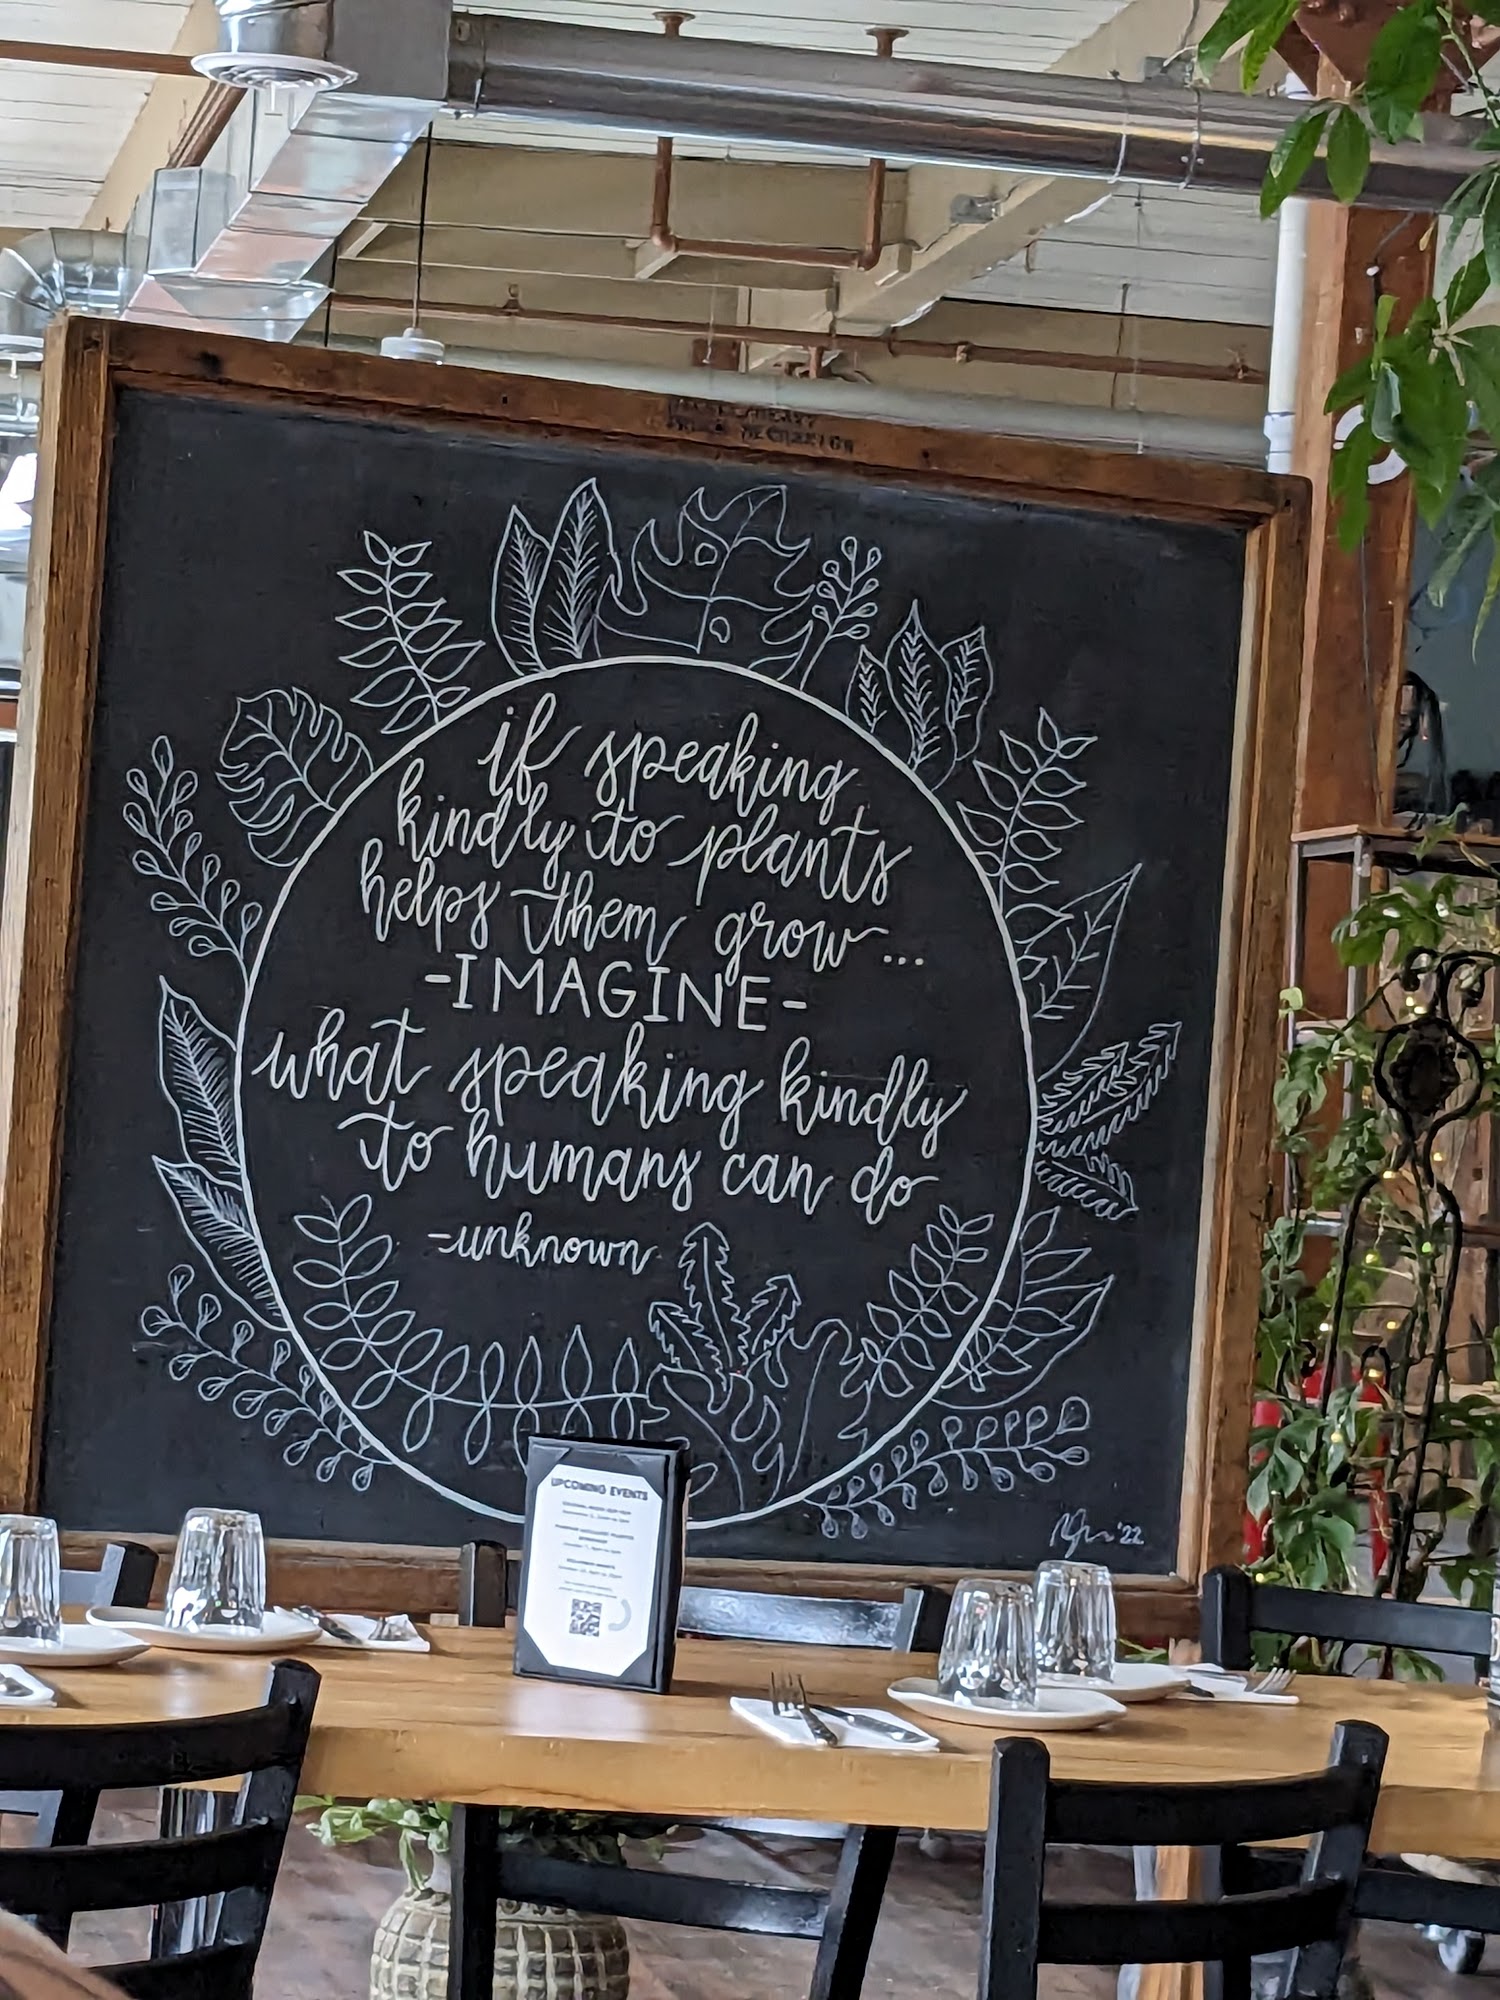 if speaking
kindly to plants
helps them grow...
-IMAGINE-
what speaking kindly
to humans can do
-unknown
'22
UPCOMING EVENTS